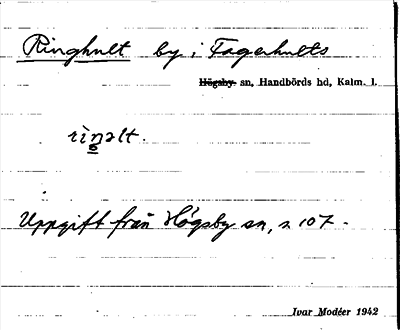 Ringhult by i Fagerhults
Högsby sn, Handbörds hd, Kalm. l.
Uppgift från Högsby sn, s 107.
Ivar Modéer 1942